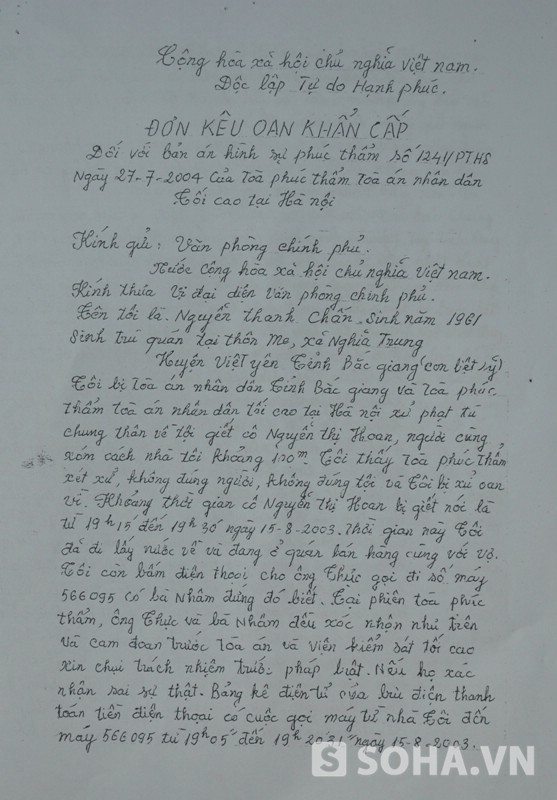 Cộng hòa xã hội chủ nghĩa việt nam.
Độc lập Tự do Hạnh phúc.
ĐƠN KÊU OAN KHẨN CẤP
Đối với bản án hình sự phúc thẩm số 1241/PTHS
Ngày 27-7-2004 Của Toà phúc thẩm Toà án nhân dân
Tối cao tại Hà nội
Kính gửi: Văn phòng chính phủ.
Nước công hòa xã hội chủ nghĩa Việt nam.
Kính thưa Vị đại diện Văn phòng chính phủ.
Tên tôi là. Nguyễn thanh Chấn. Sinh năm 1961
Sinh trú quán tại thôn Me, xã Nghĩa Trung
Huyện Việt yên Tỉnh Bắc giang (con liệt sỹ)
Tôi bị Toà án nhân dân Tỉnh Bắc giang và Toà phúc
thẩm toà án nhân dân tối cao tại Hà nội xử phạt tù
chung thân về tội giết cô Nguyễn thị Hoan, người cùng
xóm cách nhà tôi khoảng m. Tôi thấy Toà phúc thẩm
xét xử, không đúng người, không đúng tội và Tôi bị xử oan
vì. Khoảng thời gian cô Nguyễn thị Hoan bị giết nói là
từ 19h15 đến 19h30 ngày 15-8-2003. Thời gian này Tôi
đã đi lấy nước về và đang ở quán bán hàng cùng với vợ.
Tôi còn bấm điện thoại cho ông Thực gọi đi số máy
566095 có bà Nhâm đứng đó biết. Tại phiên toà phúc
thẩm, ông Thực và bà Nhâm đều xác nhận như trên
và cam đoan trước Toà án và Viện kiểm sát tối cao
xin chịu trách nhiệm trước pháp luật. Nếu họ xác
nhận sai sự thật. Bảng kê điện tử của bưu điện thanh
toán tiền điện thoại có cuộc gọi máy từ nhà Tôi đến
máy 566095 từ 19h05' đến ngày 15-8-2003.
SOHA.VN